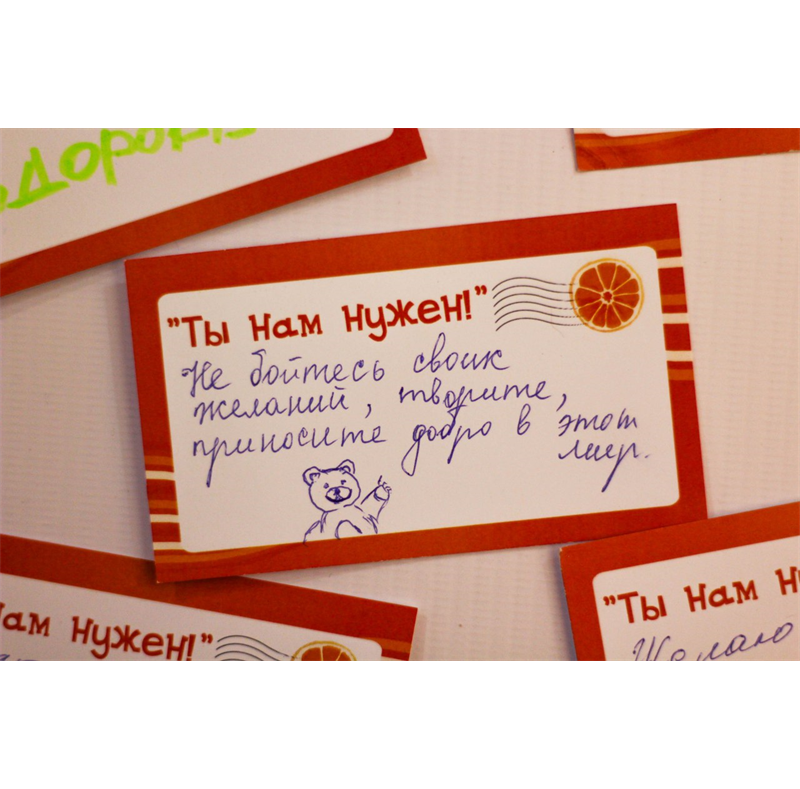 "Ты нам нужен!"
Не бойтесь своих
желаний, творите,
приносите добро в этот
мир.
нам нужен!"
"Ты нам
Желаю